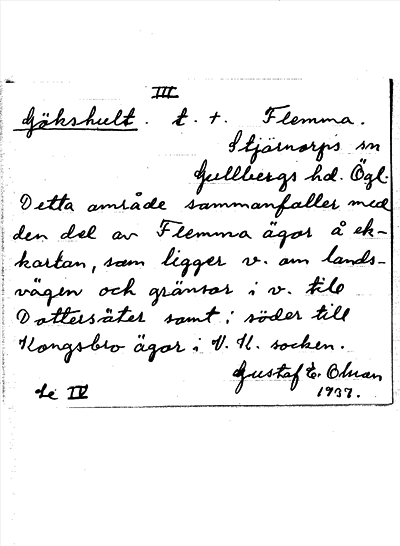 III
Gökshult. t. t. Flemma.
Stjärnorps sn
Gullbergs hd. Ögl.
Detta område sammanfaller med
den del av Flemma ägor å ek-
kartan, som ligger v. om lands-
vägen och gränsar i v. till
Dottersäter samt i söder till
Kongsbro ägor i V. K. socken.
Gustaf E. Olson
1937.
Se IV